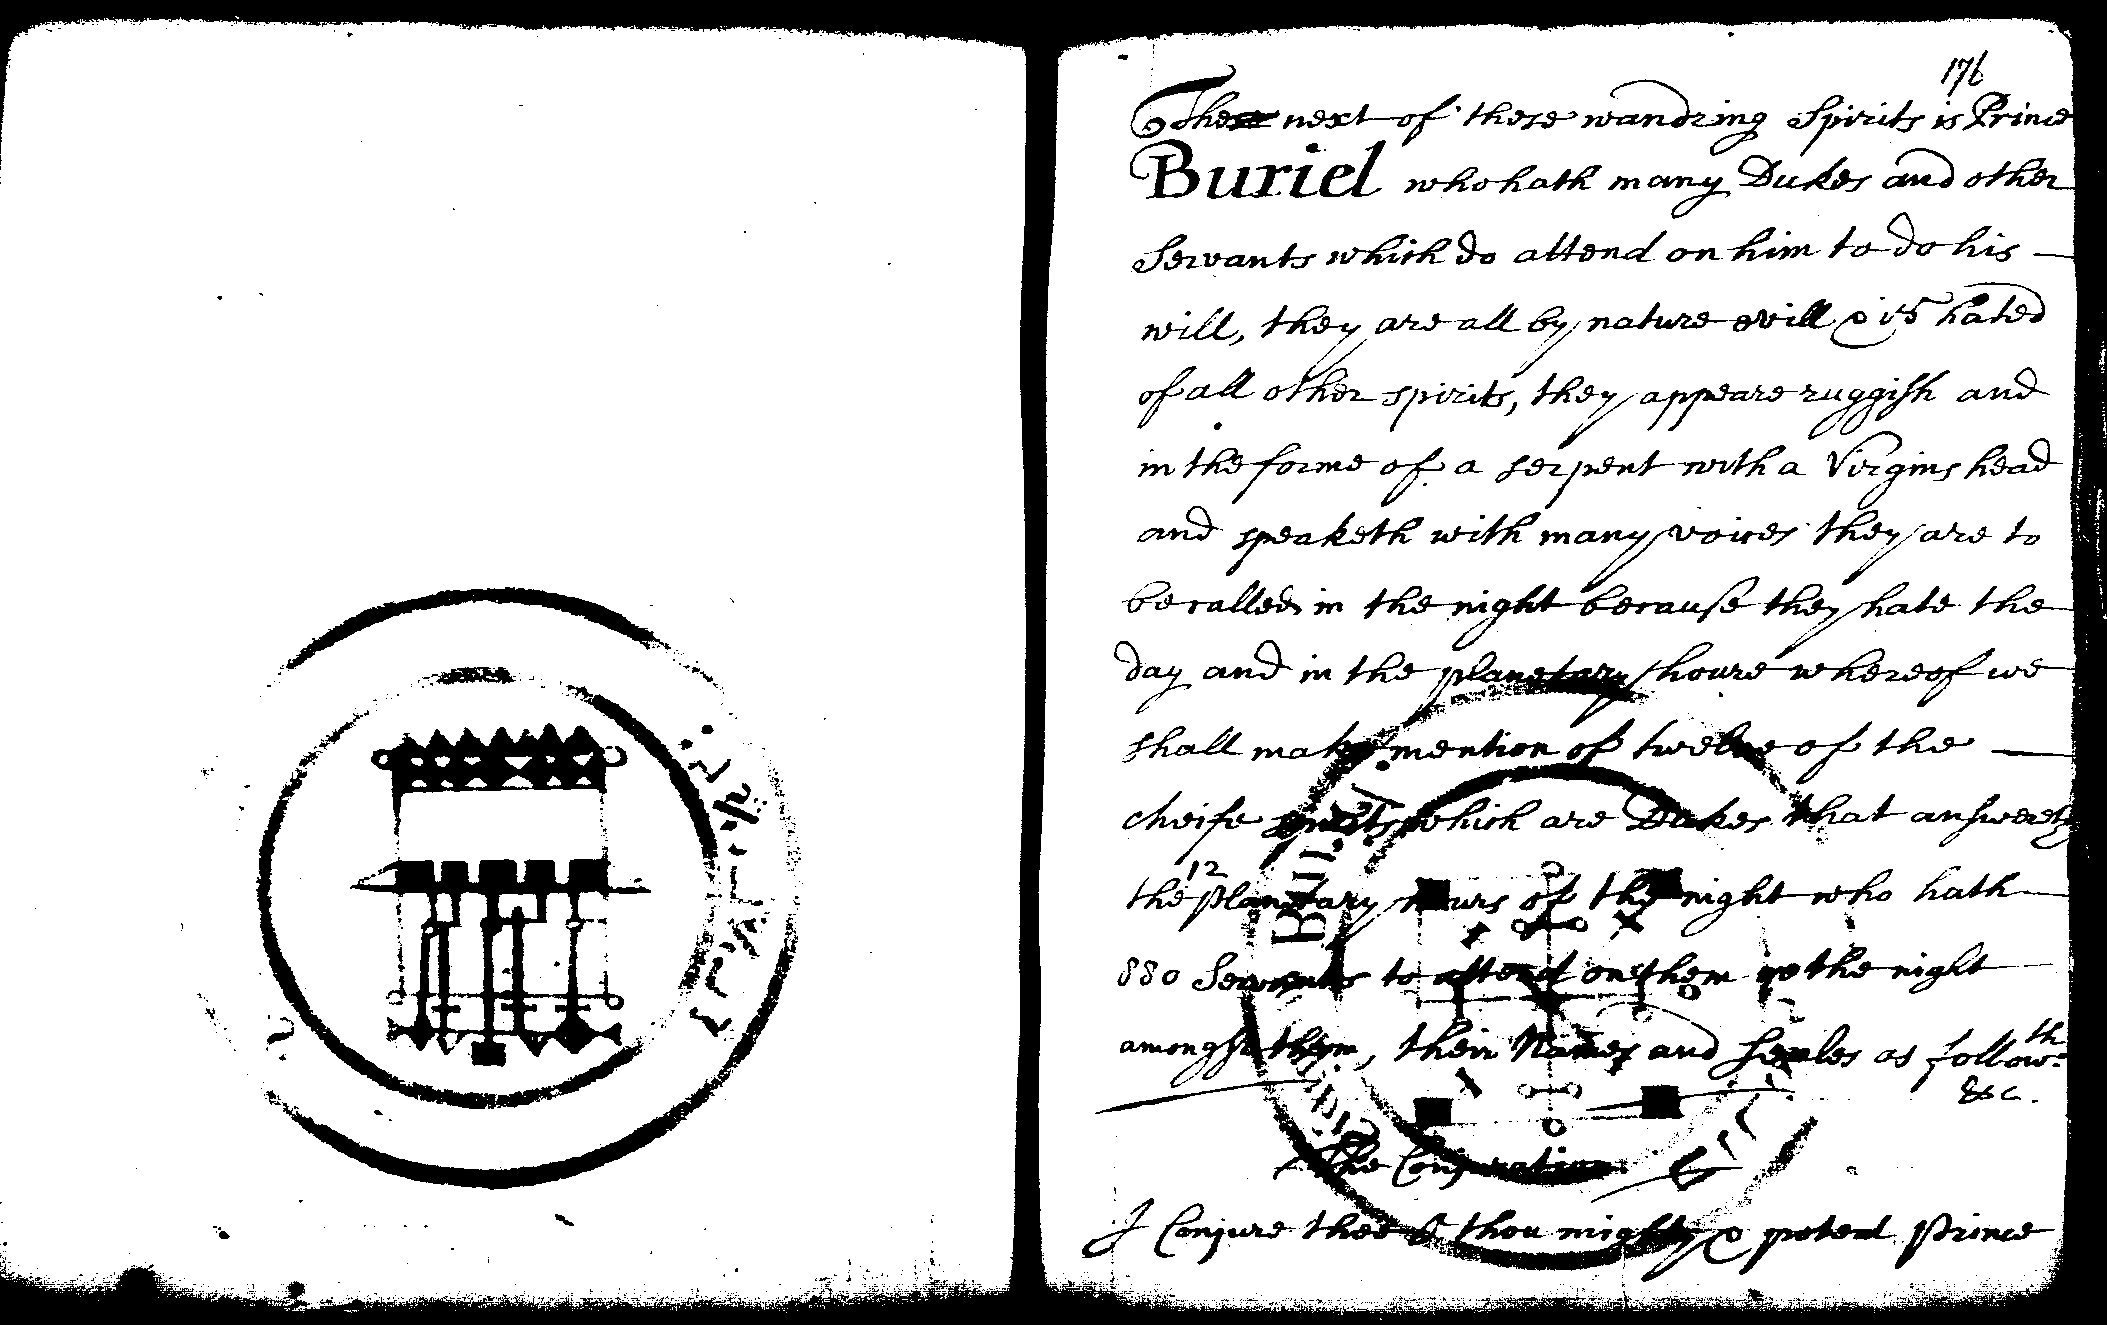 176
These next of these wandring Spirits is Prince
Buriel who hath many Dukes and other
Servants which do attend on him to do his
will, they are all by nature evill & is hated
of all other spirits, they appeare ruggish and
in the forme of a serpent with a Virgins head
and speaketh with many voices they are to
be called in the night because they hate the
day and in the planetary houre whereof we
shall make mention of twelve of the
cheife spirits which are Dukes that answereth
the 12 planetary hours of the night who hath
880 Servants to attend on them in the night
amongst them, their Names and Seales as followth
&c.
The Conjuration
I Conjure thee O thou mighty & potent Prince